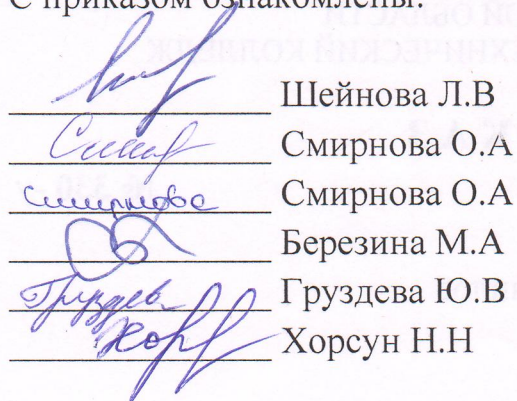 С приказом ознакомлены:
Шейнова Л.В
Смирнова О.А
Смирнова Смирнова О.А
Березина М.А
Груздева Груздева Ю.В
Хорсун Н.Н